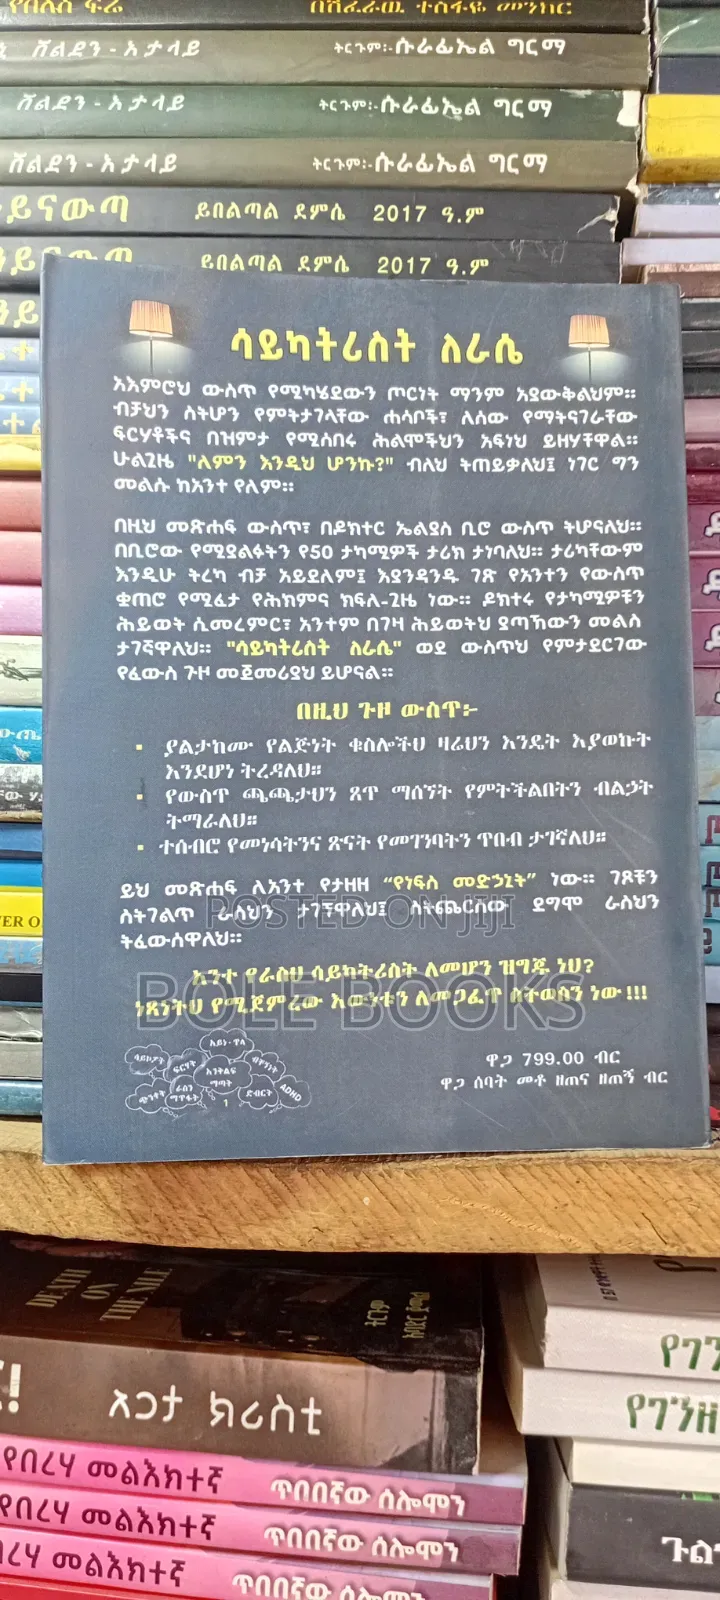 ሸልደን - አታላይ ትርጉም፡-ሱራፊኤል ግርማ
ሸልደን - አታላይ ትርጉም፡-ሱራፊኤል ግርማ
ሸልደን - አታላይ ትርጉም፡-ሱራፊኤል ግርማ
ይበልጣል ደምሴ 2017 ዓ.ም
ይበልጣል ደምሴ 2017 ዓ.ም
ሳይካትሪስት ለራሴ
አእምሮህ ውስጥ የሚካሄደውን ጦርነት ማንም አያውቅልህም።
ብቻህን ስትሆን የምትታገላቸው ሐሳቦች፣ ለሰው የማትናገራቸው
ፍርሃቶችና በዝምታ የሚሰበሩ ሕልሞችህን አፍነህ ይዘሃቸዋል።
ሁልጊዜ "ለምን እንዲህ ሆንኩ?" ብለህ ትጠይቃለህ፤ ነገር ግን
መልሱ ከአንተ የለም።
በዚህ መጽሐፍ ውስጥ፣ በዶክተር ኤልያስ ቢሮ ውስጥ ትሆናለህ።
በቢሮው የሚያልፉትን የ50 ታካሚዎች ታሪክ ታነባለህ። ታሪካቸውም
እንዲሁ ትረካ ብቻ አይደለም፤ እያንዳንዱ ገጽ የአንተን የውስጥ
ቋጠሮ የሚፈታ የሕክምና ክፍለ-ጊዜ ነው። ዶክተሩ የታካሚዎቹን
ሕይወት ሲመረምር፣ አንተም በገዛ ሕይወትህ ያጣኸውን መልስ
ታገኛዋለህ። "ሳይካትሪስት ለራሴ" ወደ ውስጥህ የምታደርገው
የፈውስ ጉዞ መጀመሪያህ ይሆናል።
በዚህ ጉዞ ውስጥ፦
▪ ያልታከሙ የልጅነት ቁስሎችህ ዛሬህን እንዴት እያወኩት
እንደሆነ ትረዳለህ።
▪ የውስጥ ጫጫታህን ጸጥ ማሰኘት የምትችልበትን ብልኃት
ትማራለህ።
▪ ተሰብሮ የመነሳትንና ጽናት የመገንባትን ጥበብ ታገኛለህ።
ይህ መጽሐፍ ለአንተ የታዘዘ “የነፍስ መድኃኒት” ነው። ገጾቹን
ስትገልጥ ራስህን ታገኘዋለህ፤ ስትጨርሰው ደግሞ ራስህን
ትፈውሰዋለህ።
POSTED ON JIJI
አንተ የራስህ ሳይካትሪስት ለመሆን ዝግጁ ነህ?
ነጻነትህ የሚጀምረው እውነቱን ለመጋፈጥ ስትወስን ነው !!!
BOLE BOOKS
ዋጋ 799.00 ብር
ዋጋ ሰባት መቶ ዘጠና ዘጠኝ ብር
አይነ-ጥላ
ፍርሃት
እንቅልፍ
ማጣት
ራስን
ማጥፋት
ጭንቀት
ድብርት
ADHD
1
DEATH
ON
THE NILE
ትርጉም
አጋታ ክሪስቲ
የበረሃ መልእክተኛ ጥበበኛው ሰሎሞን
የበረሃ መልእክተኛ ጥበበኛው ሰሎሞን
መልእክተኛ ጥበበኛው ሰሎሞን